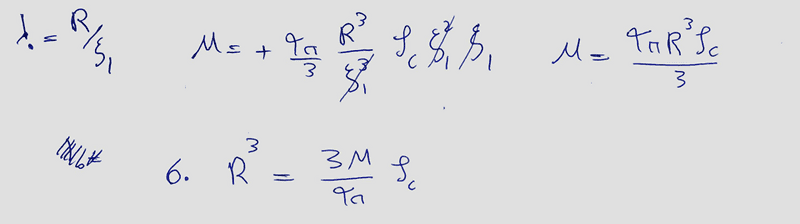 λ = R/ξ₁ M = + 4π/3 R³/ξ₁³ ρc ξ₁² ξ₁ M = 4πR³ρc/3
6. R³ = 3M/4π ρc